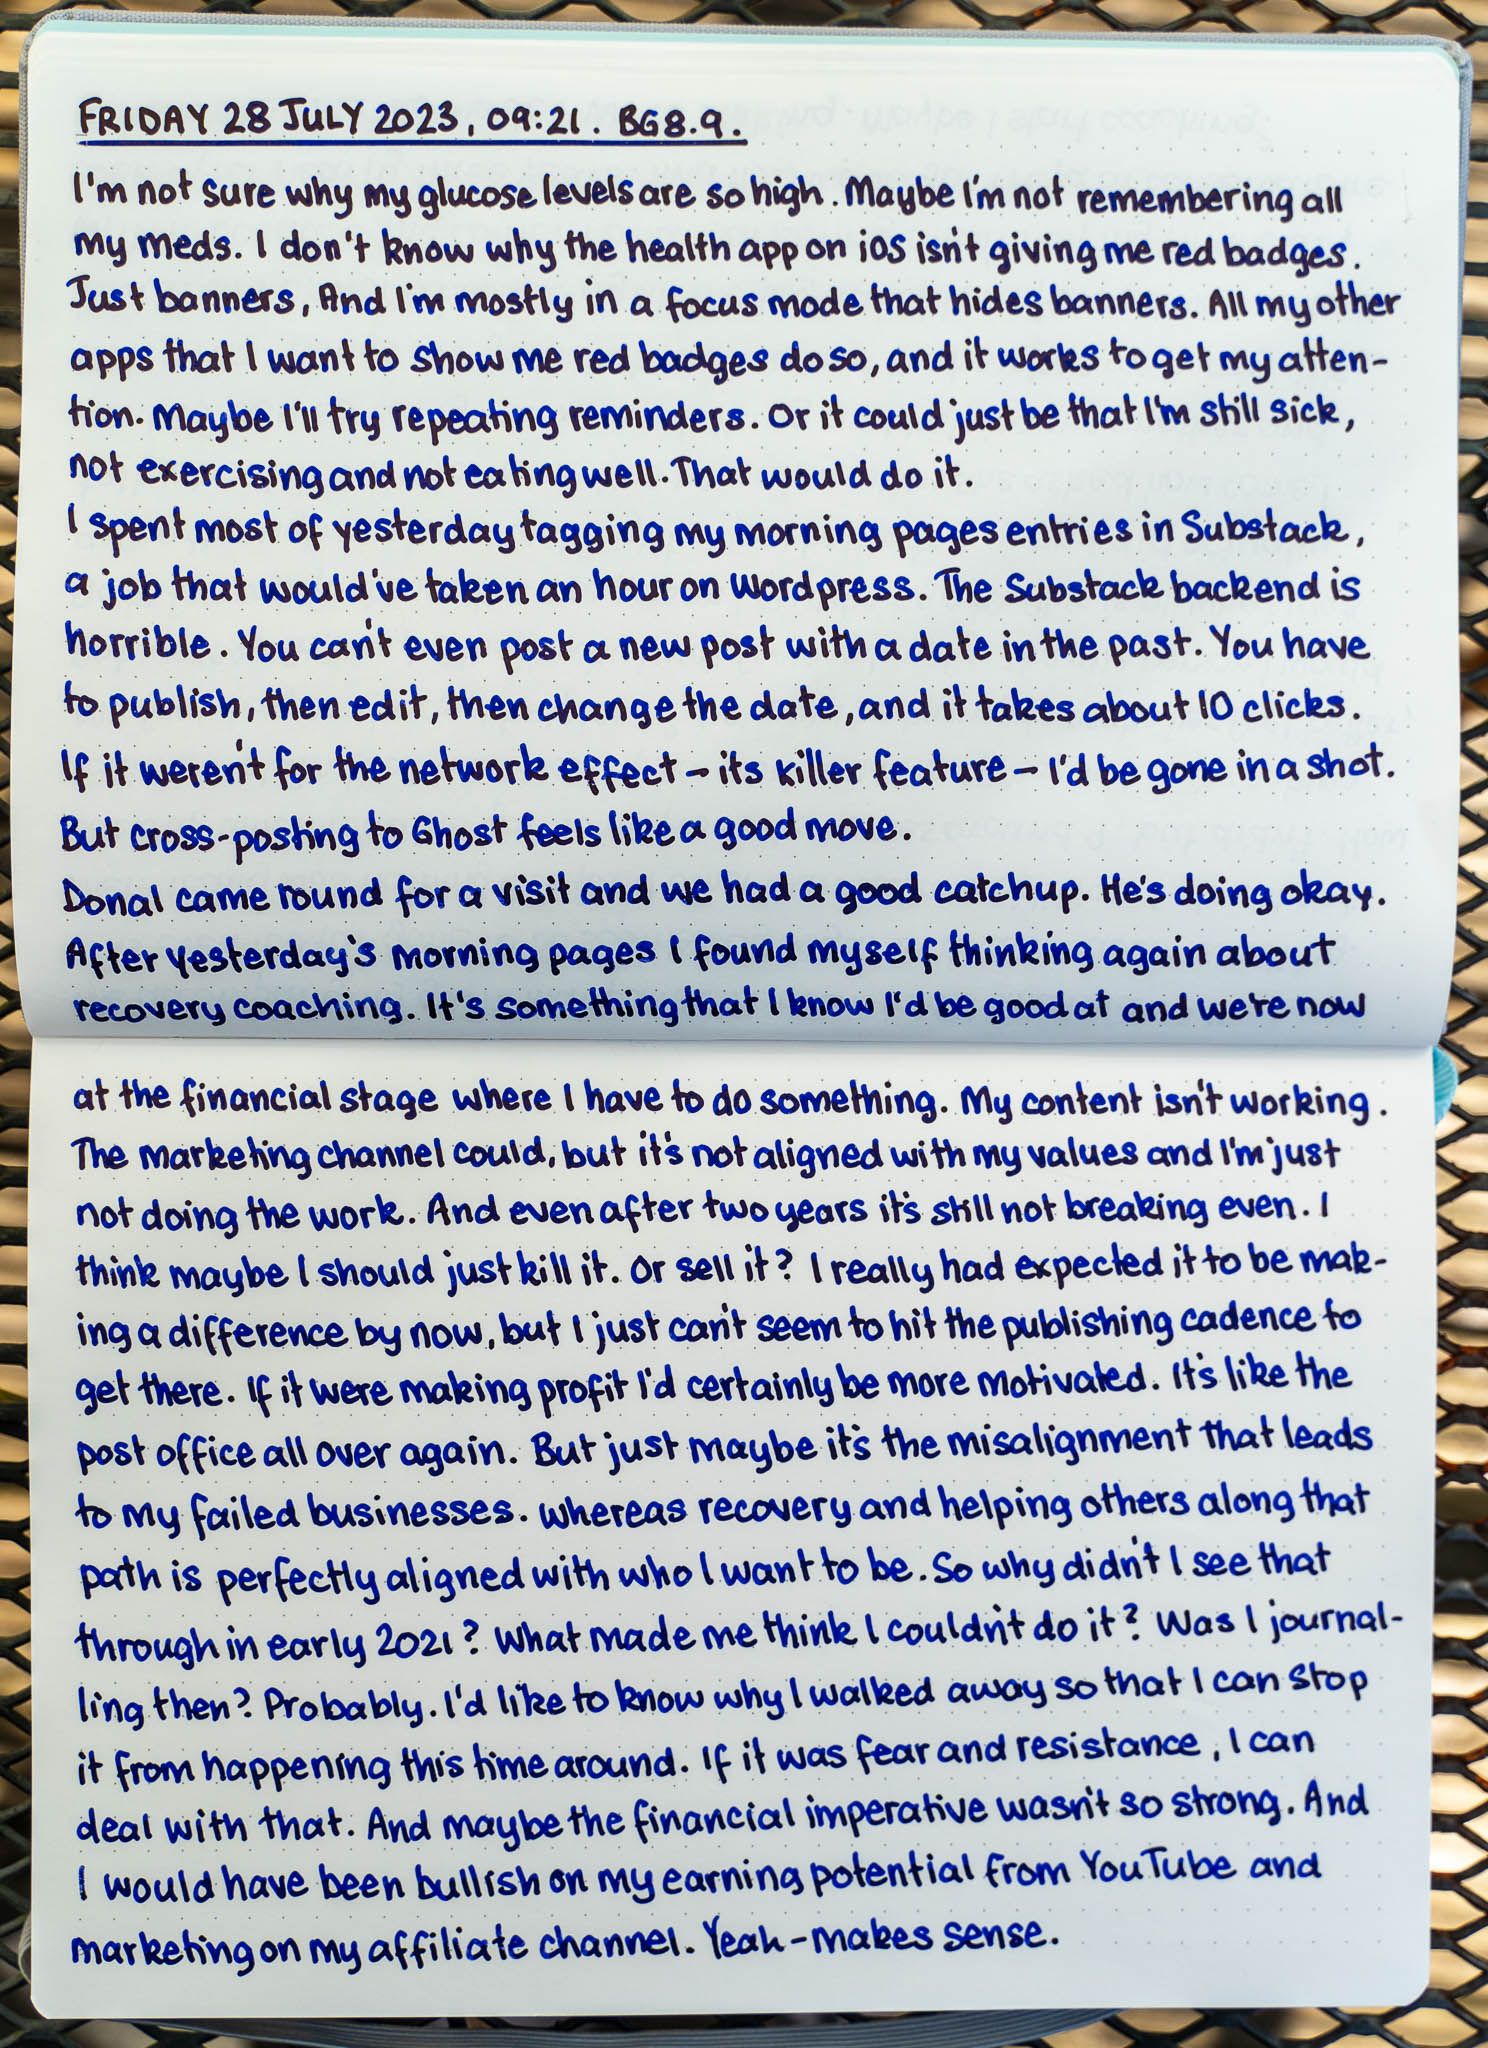 FRIDAY 28 JULY 2023, 09:21. BG8.9.
I'm not sure why my glucose levels are so high. Maybe I'm not remembering all
my meds. I don't know why the health app on iOS isn't giving me red badges.
Just banners, And I'm mostly in a focus mode that hides banners. All my other
apps that I want to show me red badges do so, and it works to get my atten-
tion. Maybe I'll try repeating reminders. Or it could just be that I'm still sick,
not exercising and not eating well. That would do it.
I spent most of yesterday tagging my morning pages entries in Substack,
a job that would've taken an hour on Wordpress. The Substack backend is
horrible. You can't even post a new post with a date in the past. You have
to publish, then edit, then change the date, and it takes about 10 clicks.
If it weren't for the network effect – its killer feature – I'd be gone in a shot.
But cross-posting to Ghost feels like a good move.
Donal came round for a visit and we had a good catchup. He's doing okay.
After yesterday's morning pages I found myself thinking again about
recovery coaching. It's something that I know I'd be good at and we're now
at the financial stage where I have to do something. My content isn't working.
The marketing channel could, but it's not aligned with my values and I'm just
not doing the work. And even after two years it's still not breaking even. I
think maybe I should just kill it. Or sell it? I really had expected it to be mak-
ing a difference by now, but I just can't seem to hit the publishing cadence to
get there. If it were making profit I'd certainly be more motivated. It's like the
post office all over again. But just maybe it's the misalignment that leads
to my failed businesses. Whereas recovery and helping others along that
path is perfectly aligned with who I want to be. So why didn't I see that
through in early 2021? What made me think I couldn't do it? Was I journal-
ling then? Probably. I'd like to know why I walked away so that I can stop
it from happening this time around. If it was fear and resistance, I can
deal with that. And maybe the financial imperative wasn't so strong. And
I would have been bullish on my earning potential from YouTube and
marketing on my affiliate channel. Yeah – makes sense.